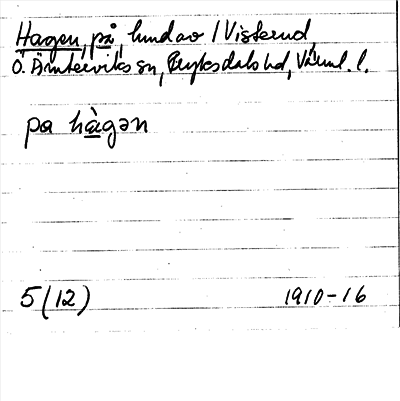 Hagen, på, lund av / Visterud,
Ö. Ämterviks sn, Fryksdals hd, Värml. l.
pa hàgən
5(12) 1910-16